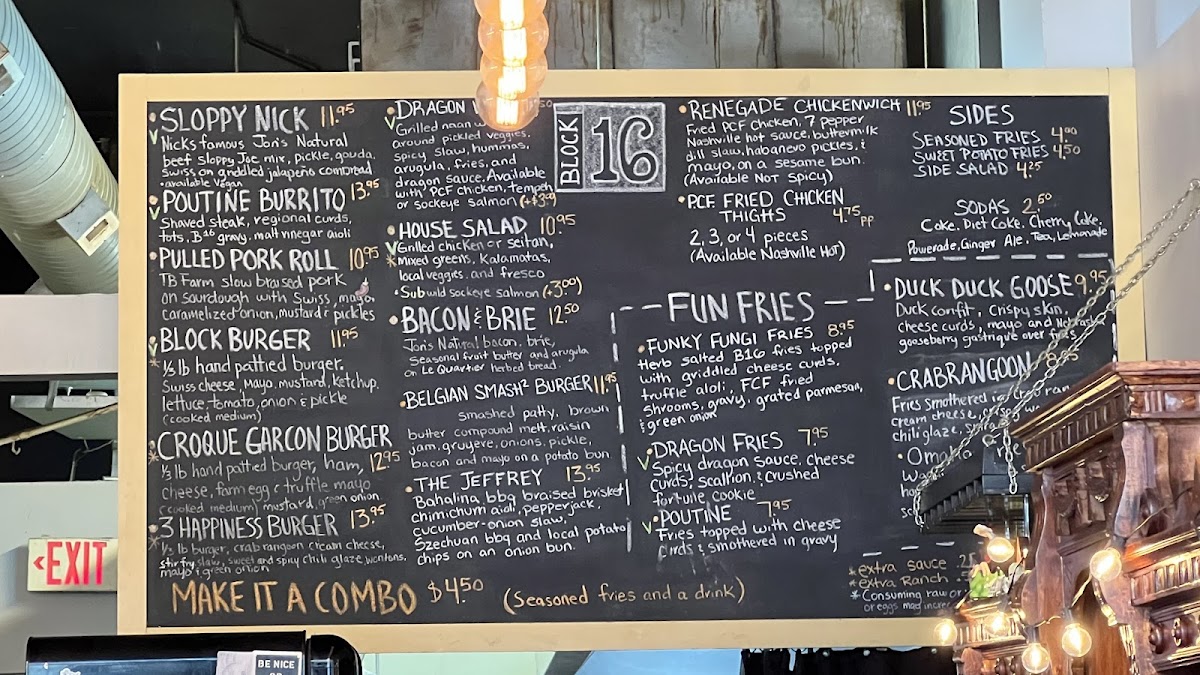 SLOPPY NICK 11.95
V Nicks famous Jon's Natural
beef sloppy Joe mix, pickle, gouda,
Swiss on griddled jalapeño cornbread
• available Vegan
POUTINE BURRITO 13.95
V Shaved steak, regional curds,
tots, B16 gravy, malt vinegar aioli
PULLED PORK ROLL 10.95
TB Farm slow braised pork
on sourdough with Swiss, mayo,
caramelized onion, mustard & pickles
BLOCK BURGER 11.95
V * 1/3 lb hand pattied burger.
Swiss cheese, mayo, mustard, ketchup,
lettuce, tomato, onion & pickle
(cooked medium)
CROQUE GARCON BURGER
* 1/3 lb hand pattied burger, ham, 12.95
cheese, farm egg & truffle mayo
(cooked medium) mustard, green onion
3 HAPPINESS BURGER 13.95
* 1/3 lb burger, crab rangoon cream cheese,
stir fry slaw, sweet and spicy chili glaze, wontons,
mayo & green onion
MAKE IT A COMBO $4.50 (Seasoned fries and a drink)
DRAGON
V Grilled naan
around pickled veggies,
spicy slaw, hummus,
arugula, fries, and
dragon sauce. Available
with PCF chicken, tempeh
or sockeye salmon
HOUSE SALAD 10.95
V Grilled chicken or seitan,
* mixed greens, Kalamatas,
local veggies, and fresco
• Sub wild sockeye salmon (+3.00)
BACON & BRIE 12.50
Jon's Natural bacon, brie,
seasonal fruit butter and arugula
on Le Quartier herbed bread
BELGIAN SMASH² BURGER 11.95
smashed patty, brown
butter compound melt, raisin
jam, gruyere, onions, pickle,
bacon and mayo on a potato bun
THE JEFFREY 13.95
Bahalina bbq braised brisket
chimichurri aioli, pepperjack,
cucumber-onion slaw,
Szechuan bbq and local potato
chips on an onion bun.
BLOCK 16
RENEGADE CHICKENWICH 11.95
Fried PCF chicken, 7 pepper
Nashville hot sauce, buttermilk
dill slaw, habanero pickles, &
mayo, on a sesame bun.
(Available NOT SPICY)
PCF FRIED CHICKEN
THIGHS 4.75 pp
2, 3, or 4 pieces
(Available Nashville HOT)
FUN FRIES
FUNKY FUNGI FRIES 8.95
Herb salted B16 fries topped
with griddled cheese curds,
truffle aioli, FCF fried
shrooms, gravy, grated parmesan,
& green onion
DRAGON FRIES 7.95
V Spicy dragon sauce, cheese
curds, scallion, & crushed
fortune cookie
POUTINE 7.95
V Fries topped with cheese
curds & smothered in gravy
SIDES
SEASONED FRIES 4.00
SWEET POTATO FRIES 4.50
SIDE SALAD 4.25
SODAS 2.50
Coke, Diet Coke, Cherry Coke,
Powerade, Ginger Ale, Tea, Lemonade
DUCK DUCK GOOSE 9.95
Duck confit, crispy skin,
cheese curds, mayo and Nebraska
gooseberry gastrique over fries
CRABRANGOON 8.95
Fries smothered
cream cheese,
chili glaze,
Omaha
* extra sauce
* extra Ranch
* Consuming raw or
or eggs may
EXIT
BE NICE